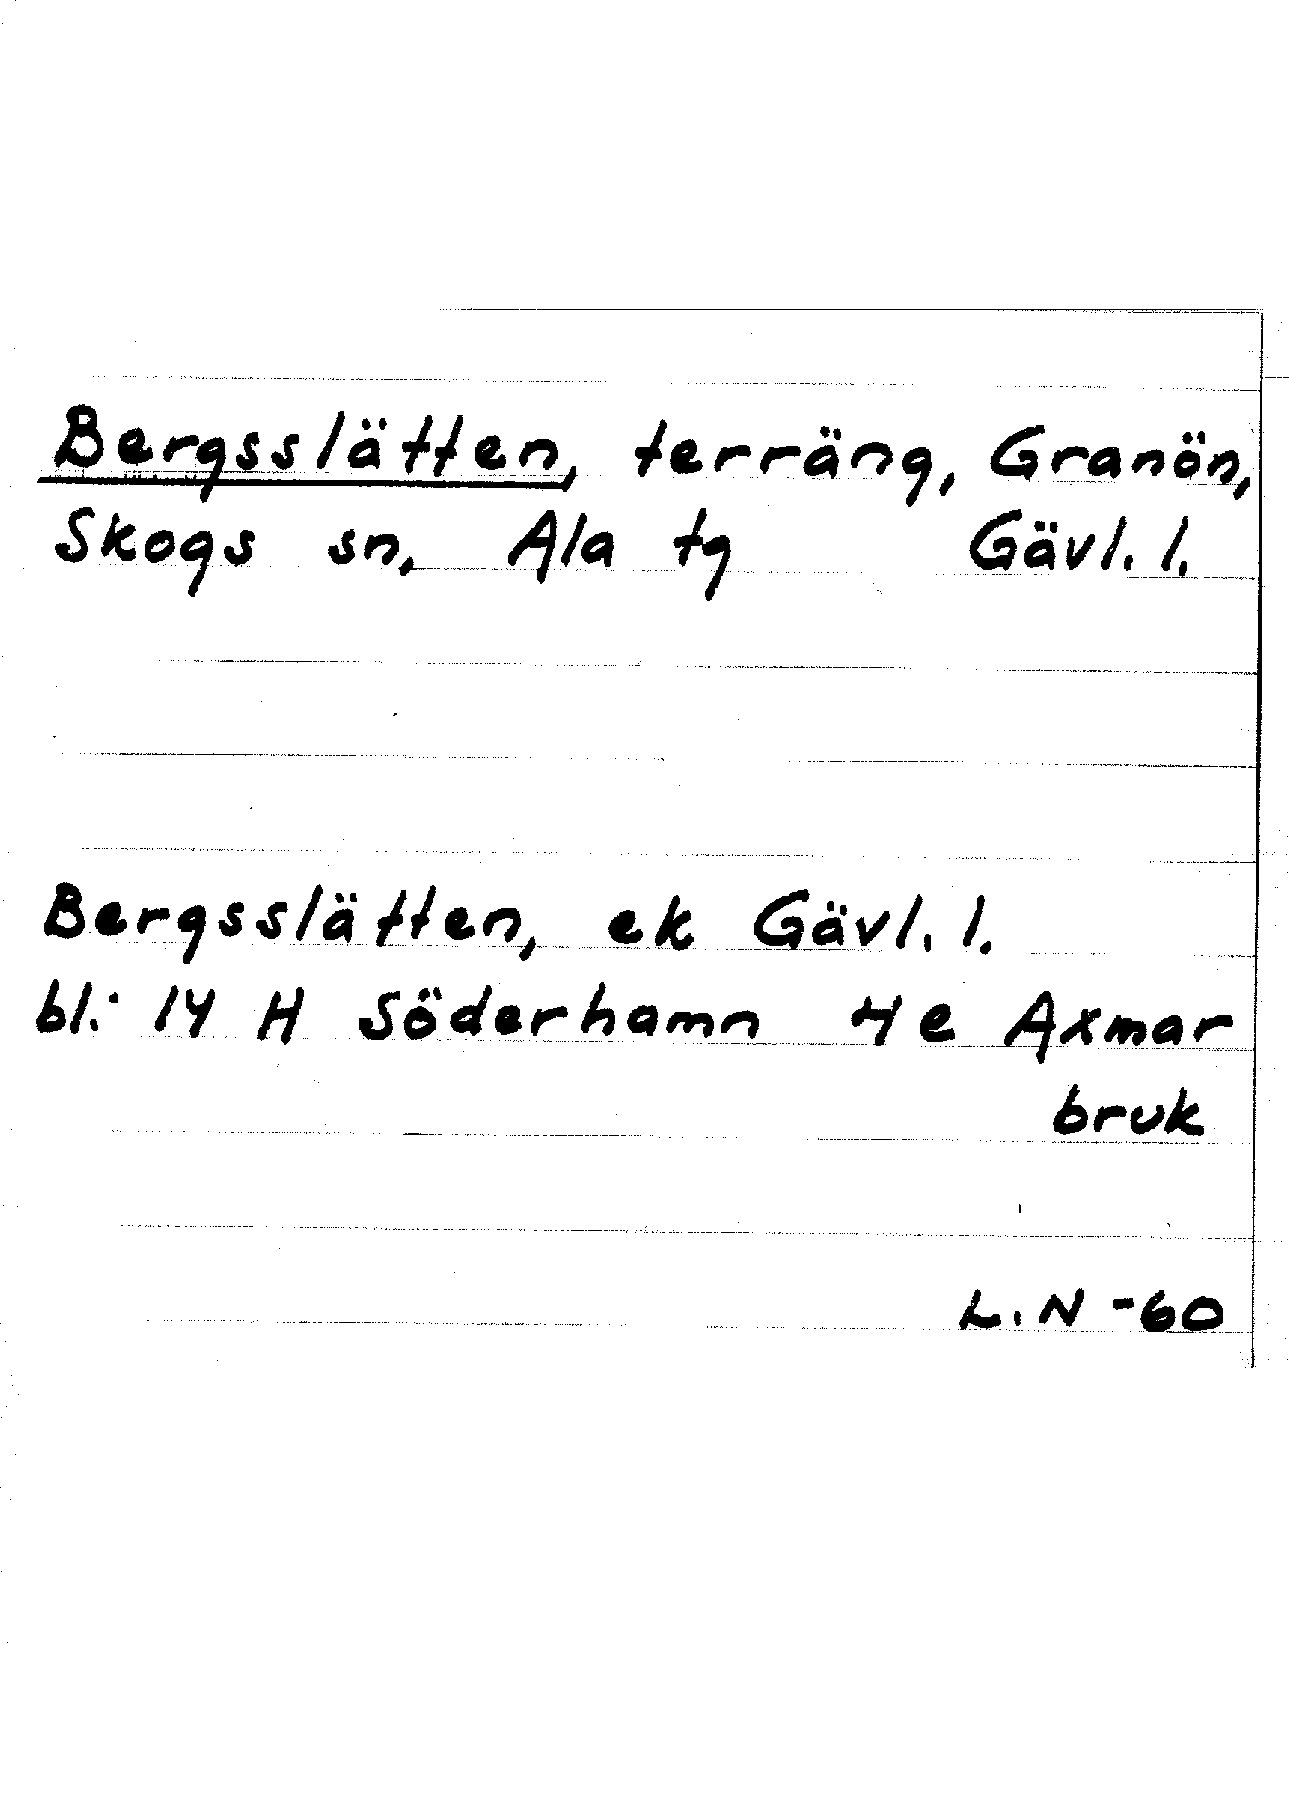 Bergsslätten, terräng, Granön,
Skogs sn, Ala tg Gävl. l.
Bergsslätten, ek Gävl. l.
bl.: 14 H Söderhamn 4 e Axmar
bruk
L. N -60